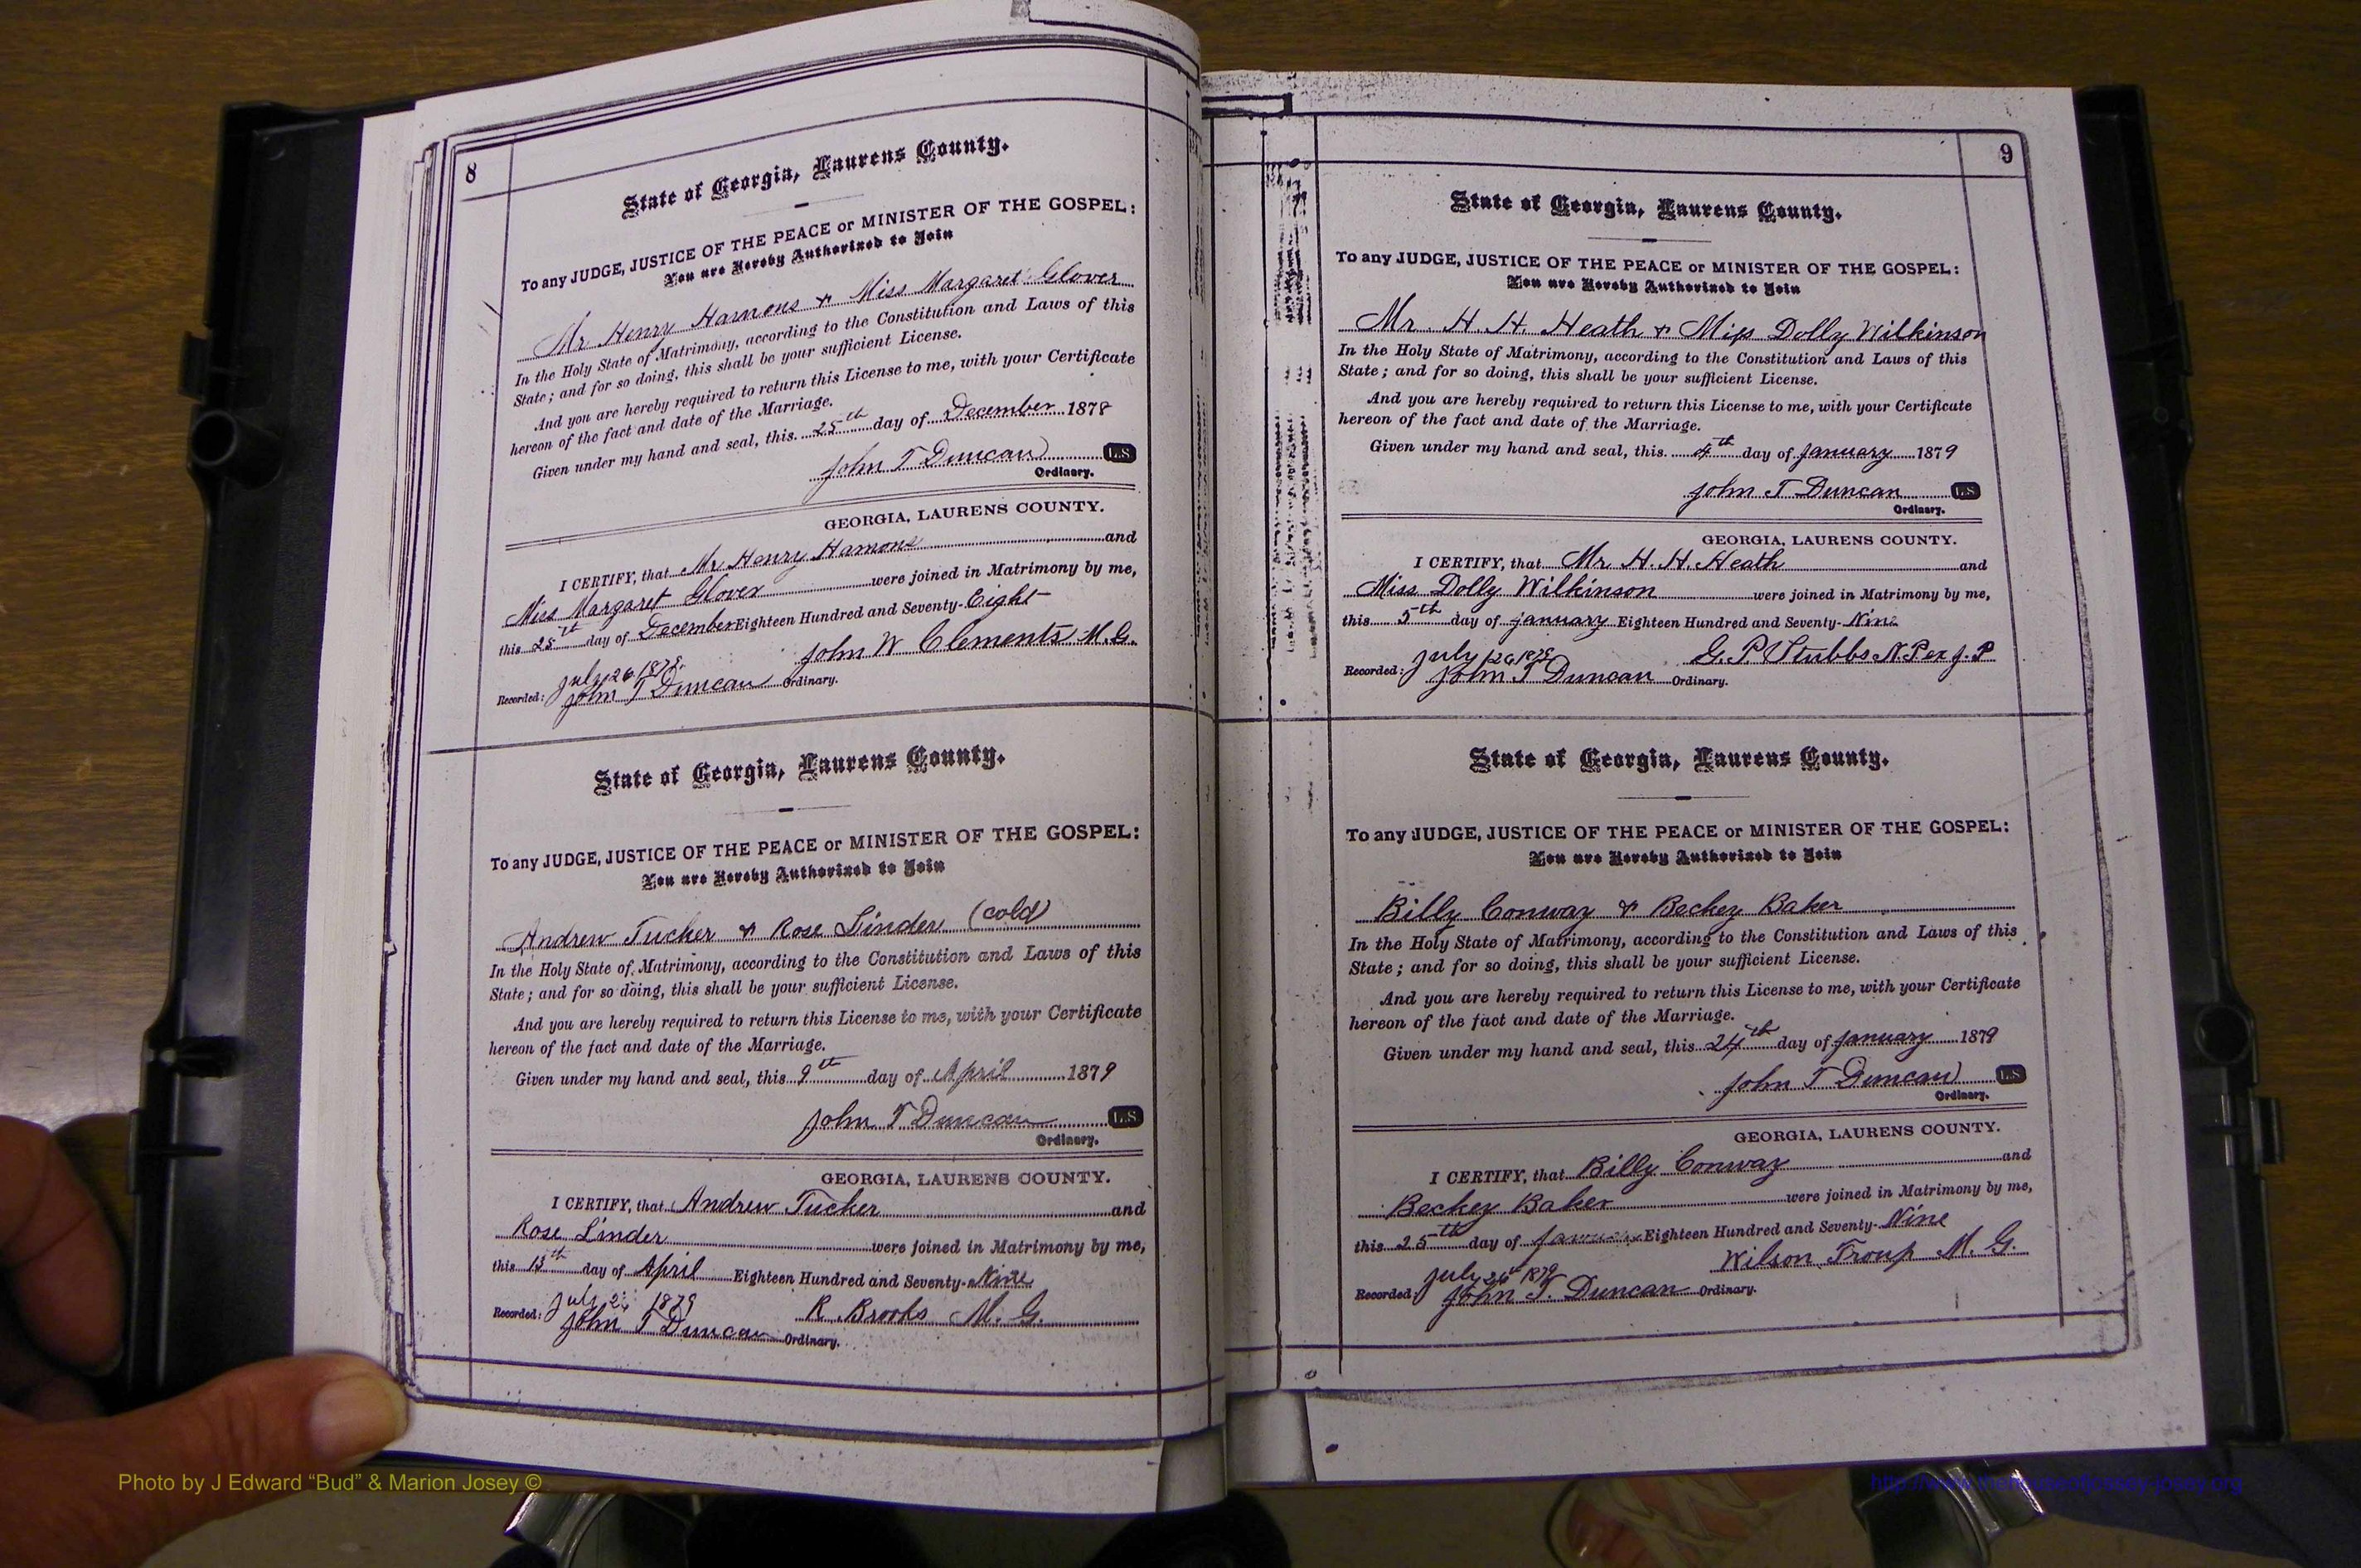 8
State of Georgia, Laurens County.
To any JUDGE, JUSTICE OF THE PEACE or MINISTER OF THE GOSPEL:
You are Hereby Authorized to Join
Mr Henry Hamons & Miss Margaret Glover
In the Holy State of Matrimony, according to the Constitution and Laws of this
State; and for so doing, this shall be your sufficient License.
And you are hereby required to return this License to me, with your Certificate
hereon of the fact and date of the Marriage.
Given under my hand and seal, this 25th day of December 1878
John T Duncan L.S
Ordinary.
GEORGIA, LAURENS COUNTY.
I CERTIFY, that Mr Henry Hamons and
Miss Margaret Glover were joined in Matrimony by me,
this 25th day of December Eighteen Hundred and Seventy-Eight
John W Clements M.G.
July 26 1879
Recorded: John T Duncan Ordinary.
State of Georgia, Laurens County.
To any JUDGE, JUSTICE OF THE PEACE or MINISTER OF THE GOSPEL:
You are Hereby Authorized to Join
Andrew Tucker & Rose Linder (cold)
In the Holy State of Matrimony, according to the Constitution and Laws of this
State; and for so doing, this shall be your sufficient License.
And you are hereby required to return this License to me, with your Certificate
hereon of the fact and date of the Marriage.
Given under my hand and seal, this 9th day of April 1879
John T Duncan L.S
Ordinary.
GEORGIA, LAURENS COUNTY.
I CERTIFY, that Andrew Tucker and
Rose Linder were joined in Matrimony by me,
this 13th day of April Eighteen Hundred and Seventy-Nine
July 1879 R. Brooks M. G.
Recorded: John T Duncan Ordinary.
9
State of Georgia, Laurens County.
To any JUDGE, JUSTICE OF THE PEACE or MINISTER OF THE GOSPEL:
You are Hereby Authorized to Join
Mr H. H. Heath & Miss Dolly Wilkinson
In the Holy State of Matrimony, according to the Constitution and Laws of this
State; and for so doing, this shall be your sufficient License.
And you are hereby required to return this License to me, with your Certificate
hereon of the fact and date of the Marriage.
Given under my hand and seal, this 4th day of January 1879
John T Duncan L.S
Ordinary.
GEORGIA, LAURENS COUNTY.
I CERTIFY, that Mr H. H. Heath and
Miss Dolly Wilkinson were joined in Matrimony by me,
this 5th day of January Eighteen Hundred and Seventy-Nine
July 26 1879 G. P. Stubbs N.P. ex J.P
Recorded: John T Duncan Ordinary.
State of Georgia, Laurens County.
To any JUDGE, JUSTICE OF THE PEACE or MINISTER OF THE GOSPEL:
You are Hereby Authorized to Join
Billy Conway & Beckey Baker
In the Holy State of Matrimony, according to the Constitution and Laws of this
State; and for so doing, this shall be your sufficient License.
And you are hereby required to return this License to me, with your Certificate
hereon of the fact and date of the Marriage.
Given under my hand and seal, this 24th day of January 1879
John T Duncan L.S
Ordinary.
GEORGIA, LAURENS COUNTY.
I CERTIFY, that Billy Conway and
Beckey Baker were joined in Matrimony by me,
this 25th day of January Eighteen Hundred and Seventy-Nine
Wilson Troup M. G.
July 26th 1879
Recorded: John T. Duncan Ordinary.
Photo by J Edward “Bud” & Marion Josey ©
http://www.thehouseofjossey-josey.org